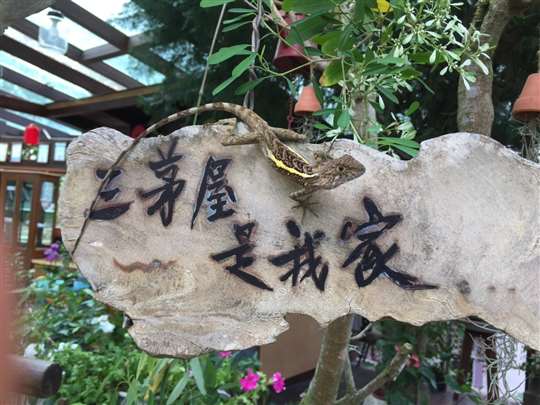 三茅屋
是我家